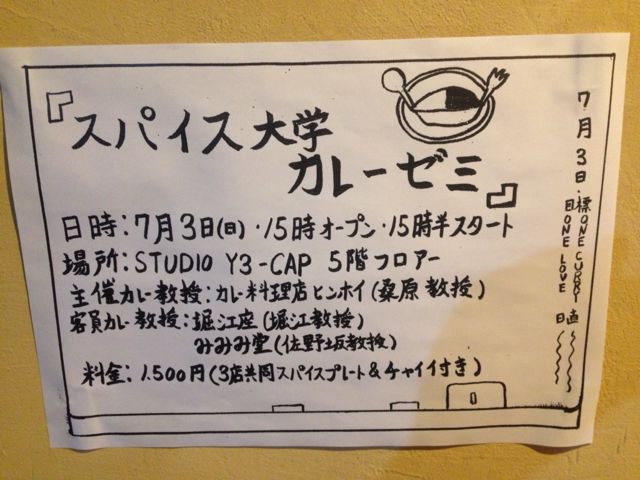 『スパイス大学
カレーゼミ』
日時:7月3日(日)・15時オープン・15時半スタート
場所:STUDIO Y3-CAP 5階フロアー
主催カレー教授:カレー料理店ヒンホイ(桑原教授)
客員カレー教授:堀江座(堀江教授)
みみみ堂(佐野坂教授)
料金:1.500円(3店共同スパイスプレート&チャイイ付き)
7月3日・
標ONE CURRY
目ONE LOVE
日直